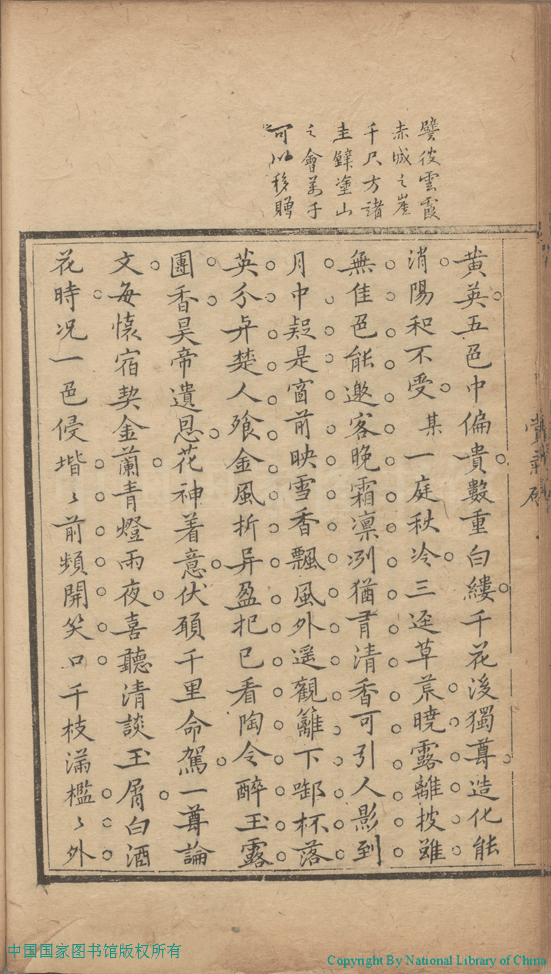 譬彼雲霞
赤城之崖
千尺方諸
圭璧塗山
之會萬子
可以移贈
黄英五色中偏貴數重白縷千花後獨尊造化能
消陽和不受某一庭秋冷三逕草荒曉露離披雖
無佳色能邀客晚霜凛冽猶有清香可引人影到
月中疑是窗前映雪香飄風外遥觀籬下啣杯落
英分與楚人飱金風折异盈把已看陶令醉玉露
團香昊帝遺恩花神着意伏願千里命駕一尊論
文每懷宿契金蘭青燈雨夜喜聽清談玉屑白酒
花時况一色侵堦〻前頻開笑口千枝滿檻〻外
中国国家图书馆版权所有
Copyright By National Library of China